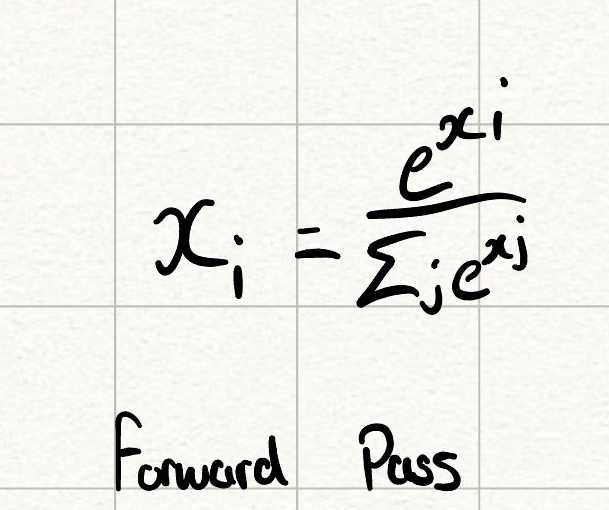 x_i = e^{x_i} / Σ_j e^{x_j}
Forward Pass